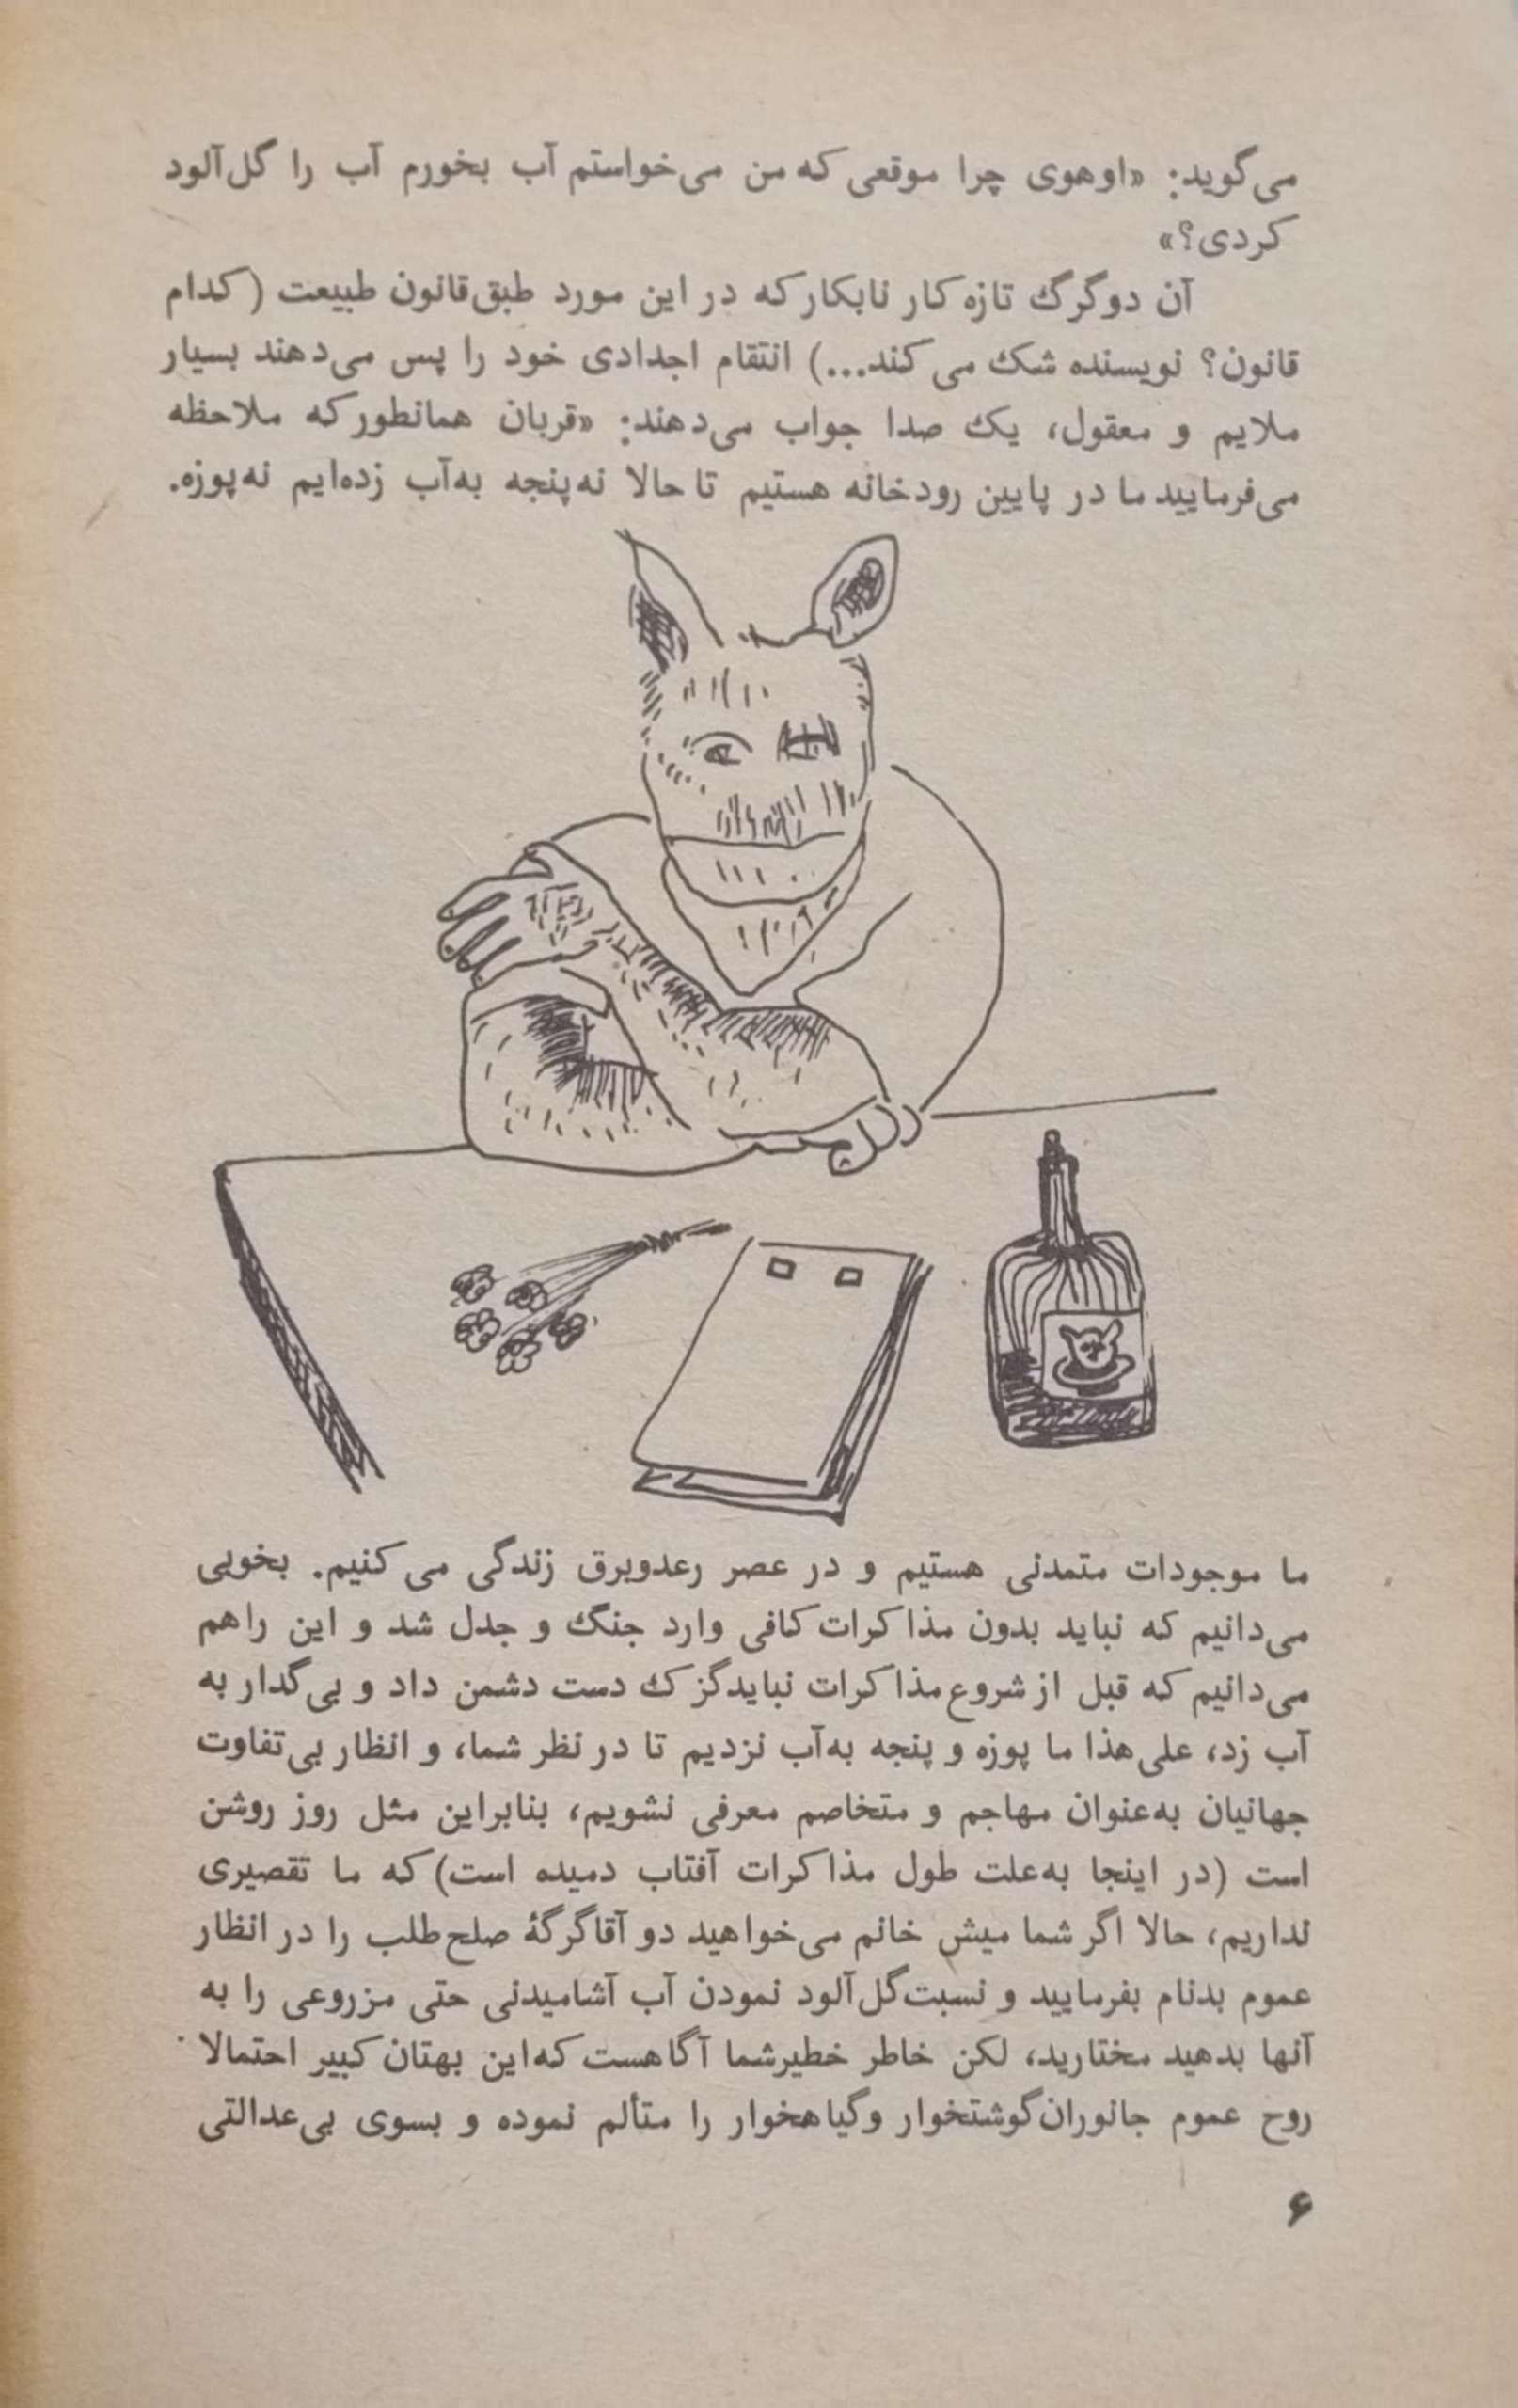 می‌گوید: «اوهوی چرا موقعی که من می‌خواستم آب بخورم آب را گل‌آلود
کردی؟»
آن دو گرگ تازه کار نابکار که در این مورد طبق قانون طبیعت (کدام
قانون؟ نویسنده شک می کند...) انتقام اجدادی خود را پس می‌دهند بسیار
ملایم و معقول، یک صدا جواب می‌دهند: «قربان همانطور که ملاحظه
می‌فرمایید ما در پایین رودخانه هستیم تا حالا نه پنجه به‌آب زده‌ایم نه پوزه.
ما موجودات متمدنی هستیم و در عصر رعدوبرق زندگی می کنیم. بخوبی
می‌دانیم که نباید بدون مذاکرات کافی وارد جنگ و جدل شد و این را هم
می‌دانیم که قبل از شروع مذاکرات نباید گزک دست دشمن داد و بی‌گدار به
آب زد، علی‌هذا ما پوزه و پنجه به‌آب نزدیم تا در نظر شما، و انظار بی‌تفاوت
جهانیان به‌عنوان مهاجم و متخاصم معرفی نشویم، بنابراین مثل روز روشن
است (در اینجا به‌علت طول مذاکرات آفتاب دمیده است) که ما تقصیری
نداریم، حالا اگر شما میش خانم می‌خواهید دو آقا گرگهٔ صلح‌طلب را در انظار
عموم بدنام بفرمایید و نسبت گل‌آلود نمودن آب آشامیدنی حتی مزروعی را به
آنها بدهید مختارید، لکن خاطر خطیر شما آگاهست که این بهتان کبیر احتمالا
روح عموم جانوران گوشتخوار و گیاهخوار را متألم نموده و بسوی بی‌عدالتی
۶